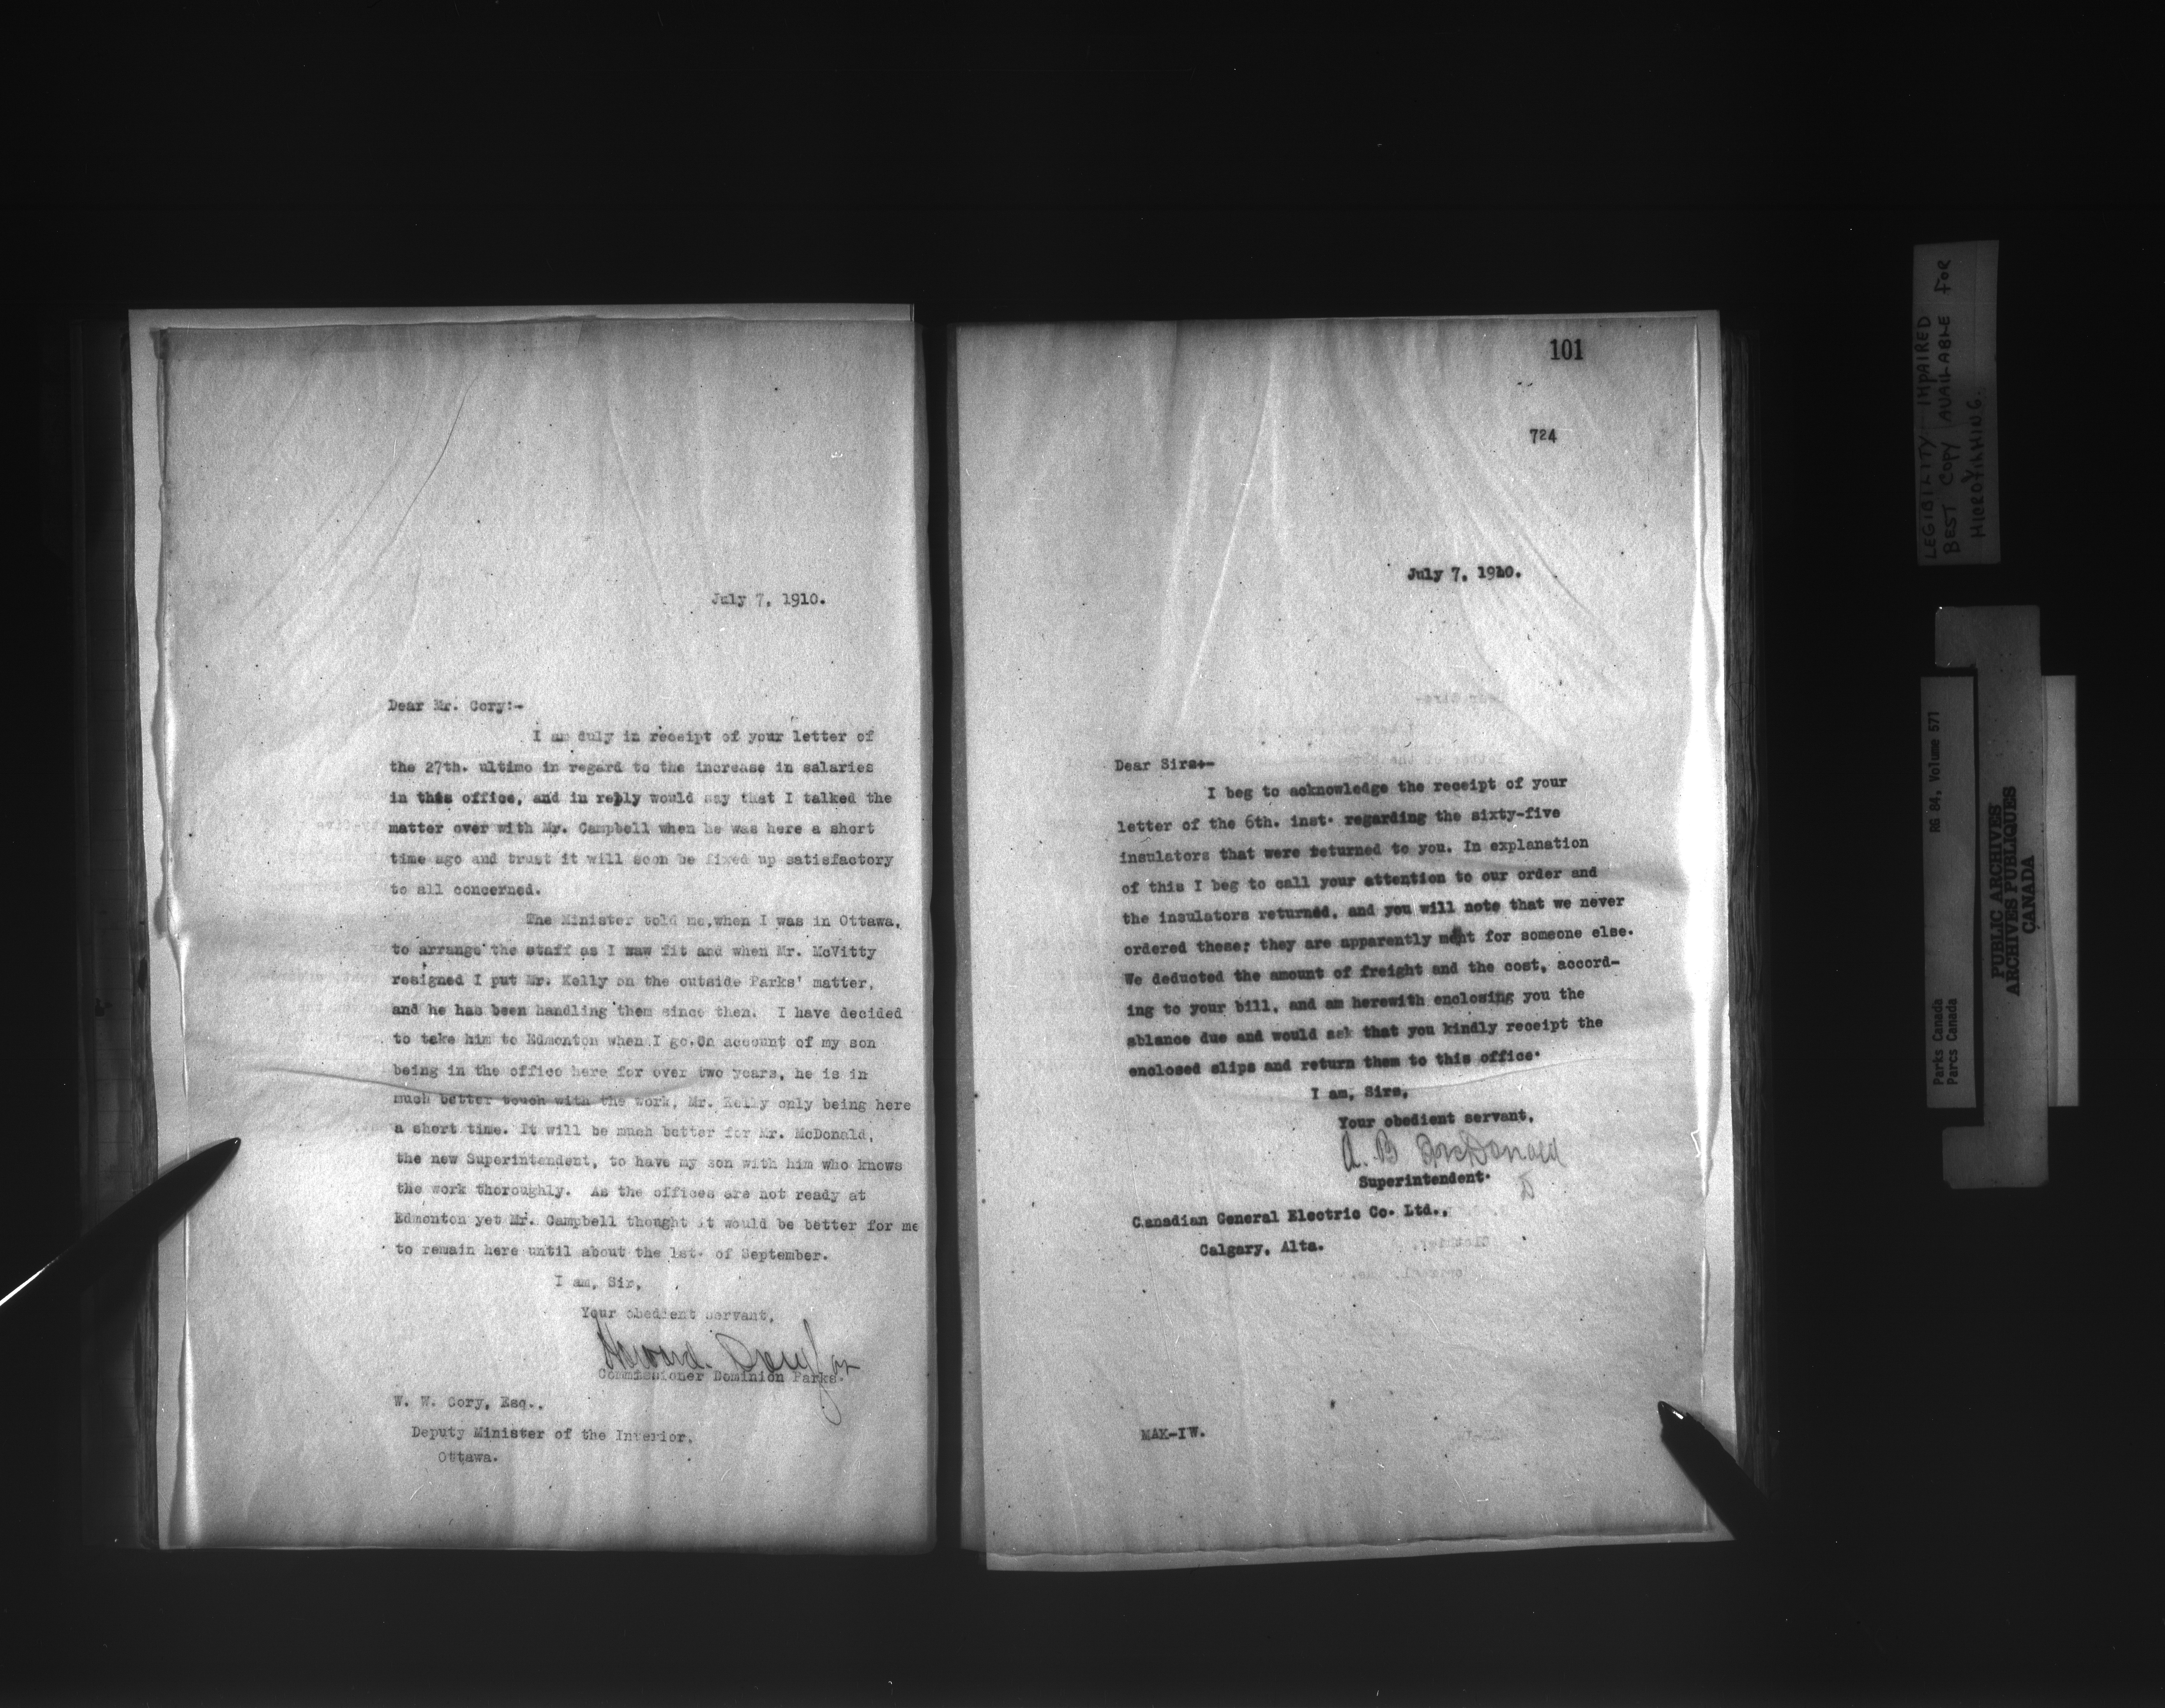 July 7, 1910.
Dear Mr. Cory:-
I am duly in receipt of your letter of
the 27th. ultimo in regard to the increase in salaries
in this office, and in reply would say that I talked the
matter over with Mr. Campbell when he was here a short
time ago and trust it will soon be fixed up satisfactory
to all concerned.
The Minister told me,when I was in Ottawa,
to arrange the staff as I saw fit and when Mr. McVitty
resigned I put Mr. Kelly on the outside Parks' matter,
and he has been handling them since then. I have decided
to take him to Edmonton when I go.On account of my son
being in the office here for over two years, he is in
much better touch with the work, Mr. Kelly only being here
a short time. It will be much better for Mr. McDonald,
the new Superintendent, to have my son with him who knows
the work thoroughly. As the offices are not ready at
Edmonton yet Mr. Campbell thought it would be better for me
to remain here until about the 1st. of September.
I am, Sir,
Your obedient servant,
Howard Douglas
Commissioner Dominion Parks.
W. W. Cory, Esq.,
Deputy Minister of the Interior,
Ottawa.
101
724
July 7, 1910.
Dear Sirs:-
I beg to acknowledge the receipt of your
letter of the 6th. inst. regarding the sixty-five
insulators that were returned to you. In explanation
of this I beg to call your attention to our order and
the insulators returned, and you will note that we never
ordered these; they are apparently ment for someone else.
We deducted the amount of freight and the cost, accord-
ing to your bill, and am herewith enclosing you the
ablance due and would ask that you kindly receipt the
enclosed slips and return them to this office.
I am, Sirs,
Your obedient servant,
A. B McDonald
Superintendent.
D
Canadian General Electric Co. Ltd.,
Calgary, Alta.
MAK-IW.
LEGIBILITY IMPAIRED
BEST COPY AVAILABLE FOR
MICROFILMING.
Parks Canada RG 84, Volume 571
Parcs Canada
PUBLIC ARCHIVES
ARCHIVES PUBLIQUES
CANADA